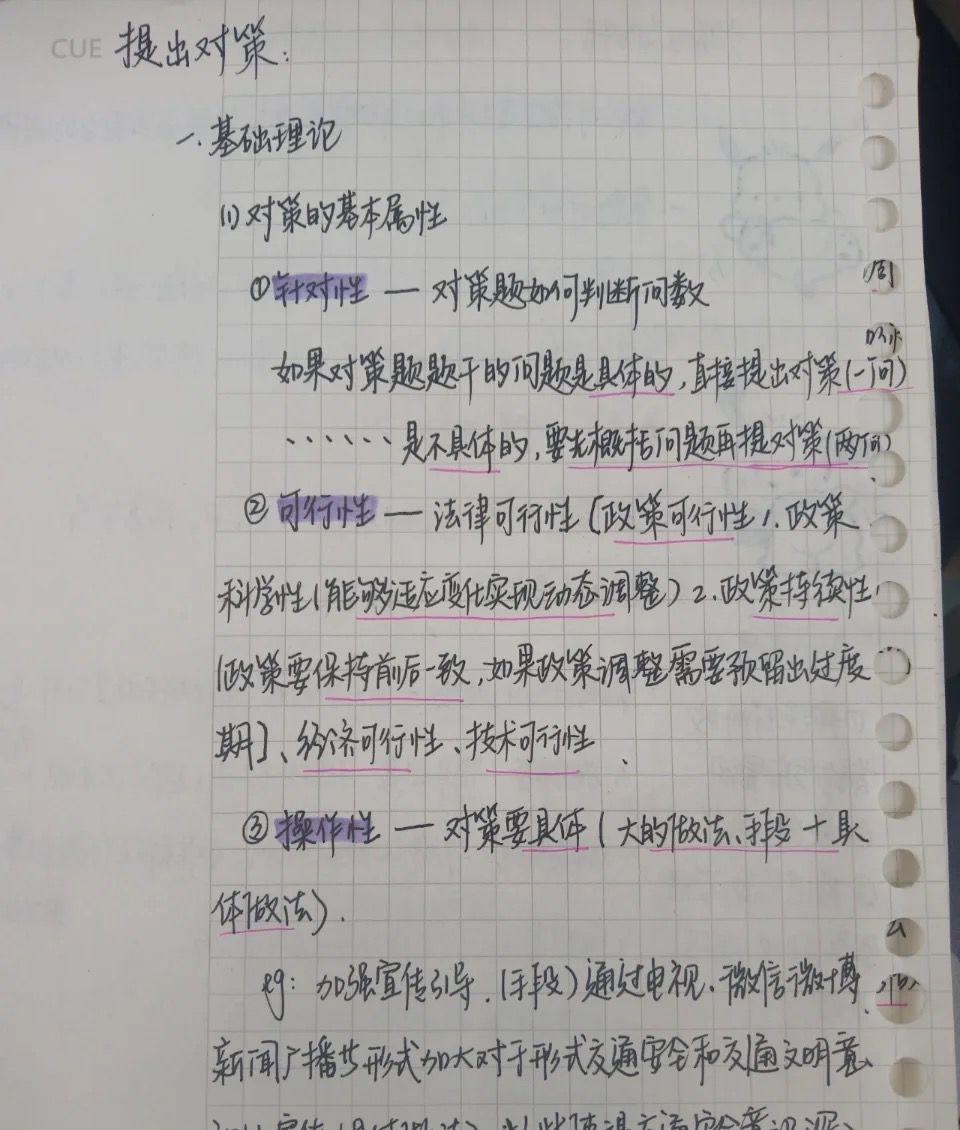 CUE 提出对策:
一.基础理论
(1)对策的基本属性
①针对性 — 对策题如何判断问数
如果对策题题干的问题是具体的,直接提出对策(一问)
、、、、、、是不具体的,要先概括问题再提对策(两问)
②可行性 — 法律可行性[政策可行性1.政策
科学性(能够适应变化实现动态调整)2.政策持续性
(政策要保持前后一致,如果政策调整需要预留出过度
期]、经济可行性、技术可行性、
③操作性 — 对策要具体(大的做法、手段+具
体做法).
eg:加强宣传引导.(手段)通过电视、微信微博、
新闻广播等形式加大对于形式交通安全和交通文明意